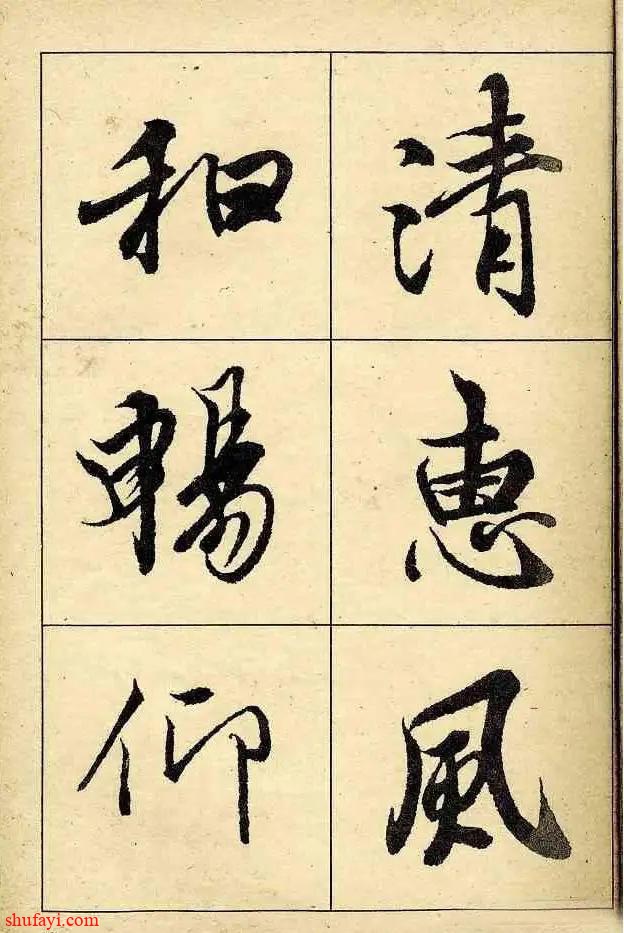 清惠風
和暢仰
shufayi.com